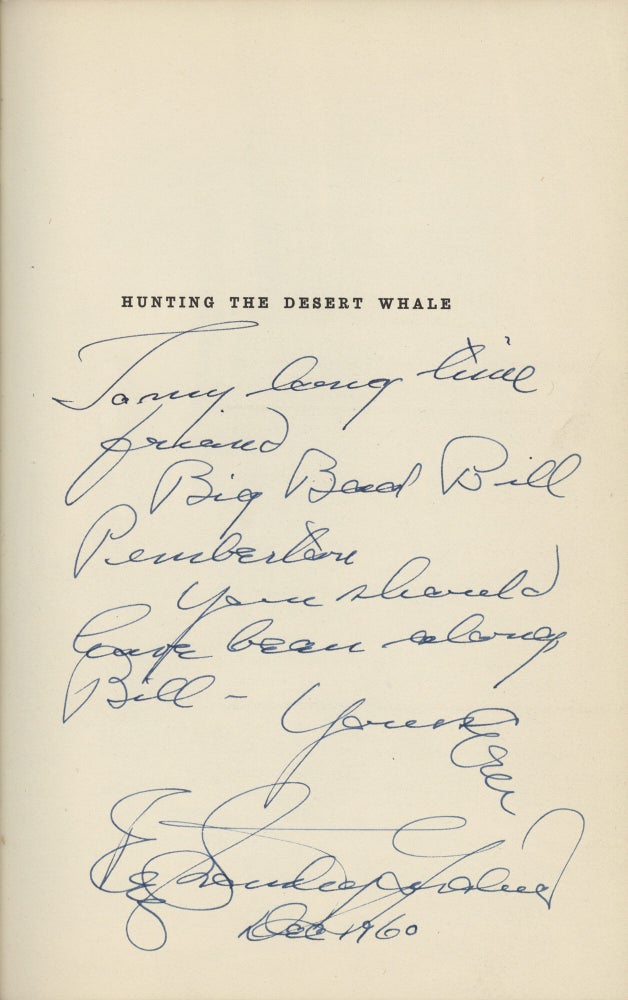 HUNTING THE DESERT WHALE
To my long time
friend
Big Bad Bill
Pemberton
You should
have been along
Bill –
Yours
Ever
Dec 1960